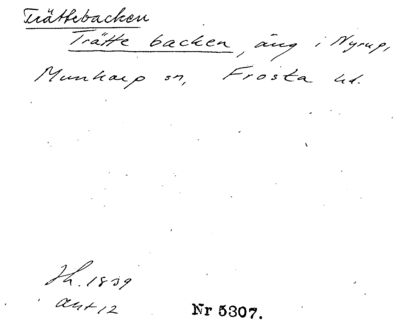 Trättebacken
Trätte backen, äng i Nyrup,
Munkarp sn, Frosta hd.
Sh. 1839
akt 12
Nr 5307.